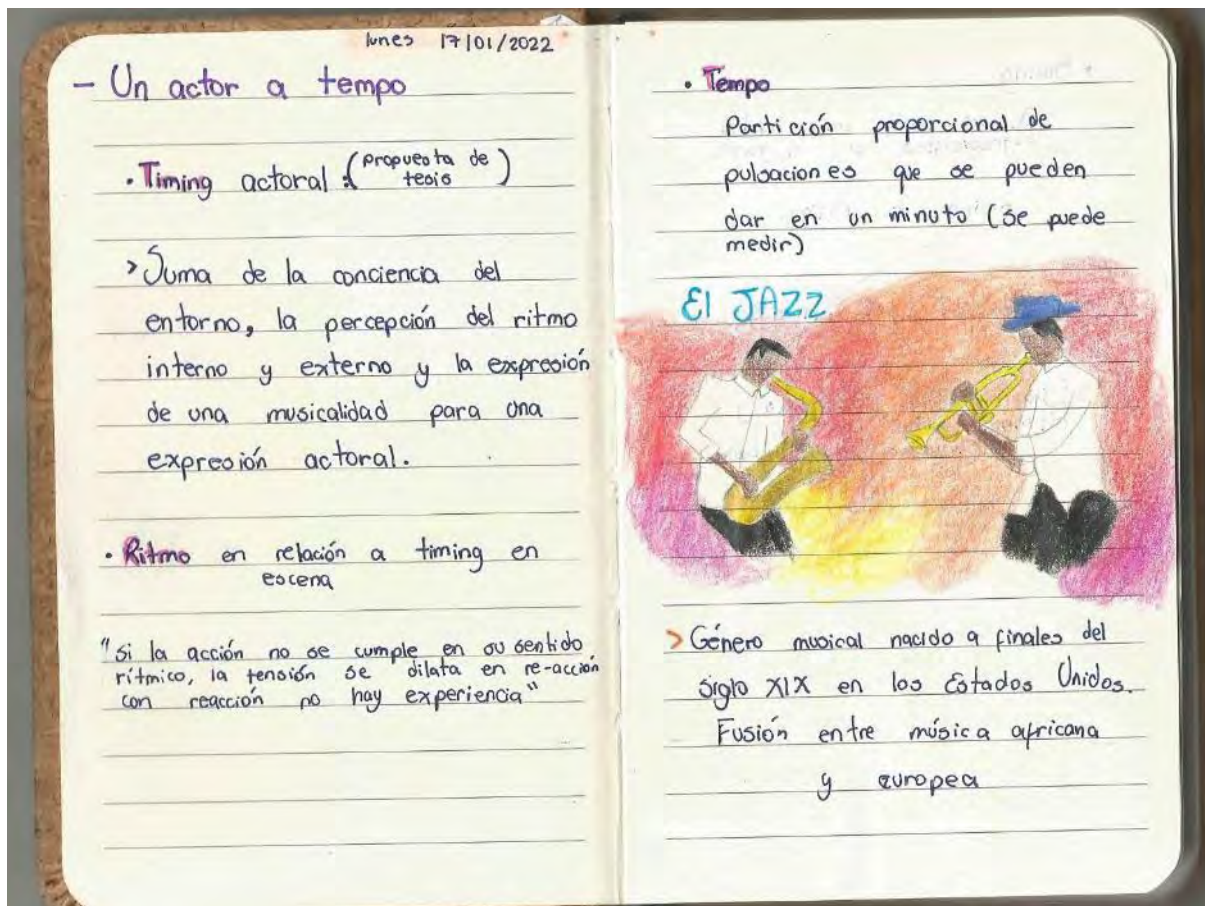 lunes 17/01/2022
- Un actor a tempo
• Timing actoral : (propuesta de
tesis)
> Suma de la conciencia del
entorno, la percepción del ritmo
interno y externo y la expresión
de una musicalidad para una
expresión actoral.
• Ritmo en relación a timing en
escena
"Si la acción no se cumple en su sentido
rítmico, la tensión se dilata en re-acción
con reacción no hay experiencia"
• Tempo
Partición proporcional de
pulsaciones que se pueden
dar en un minuto (se puede
medir)
El JAZZ
> Género musical nacido a finales del
siglo XIX en los Estados Unidos.
Fusión entre música africana
y europea